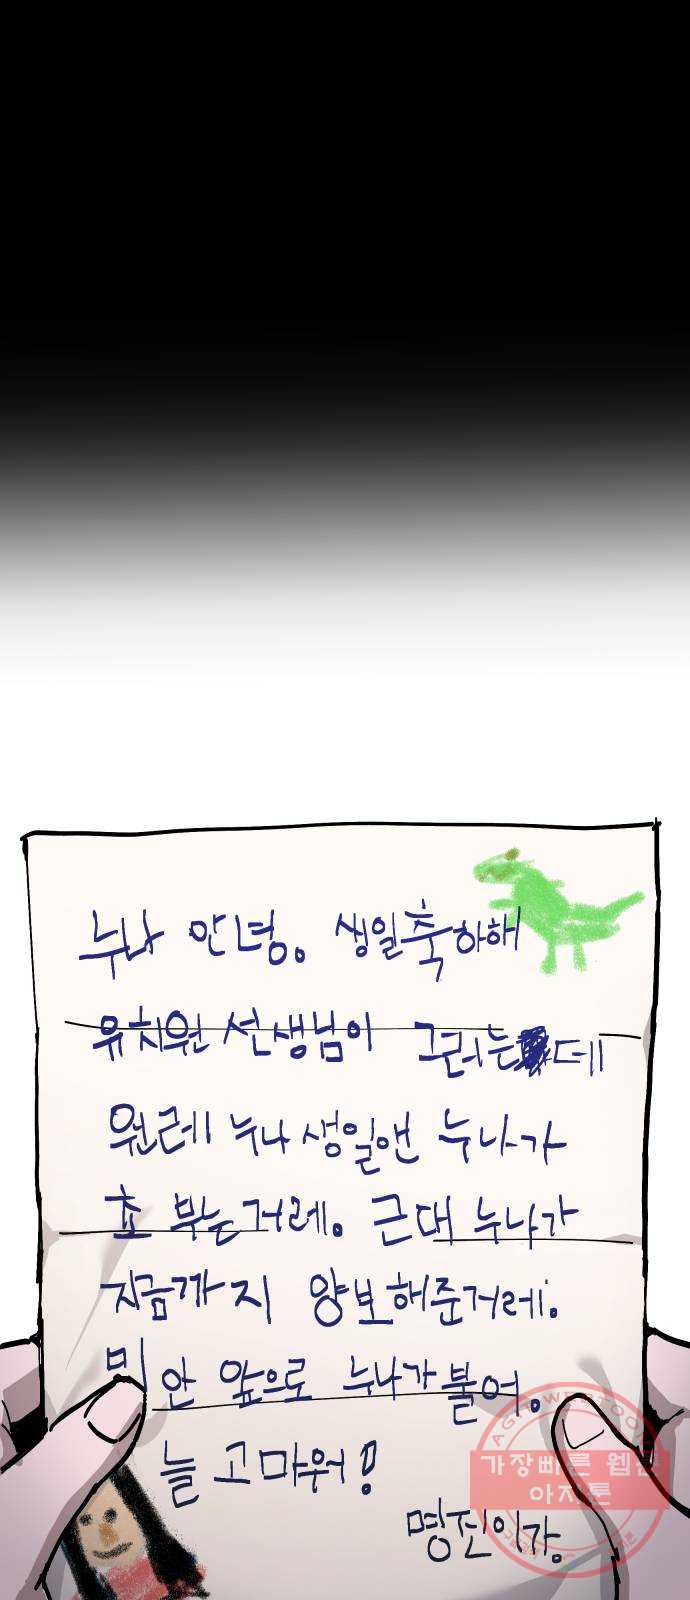 누나 안녕. 생일축하해
유치원 선생님이 그러는데
원레 누나 생일앤 누나가
초 부는거레. 근대 누나가
지금까지 양보해준거레.
미안 앞으로 누나가 불어.
늘 고마워!
명진이가.
AGIT WEBTOON
가장빠른 웹툰
아지툰